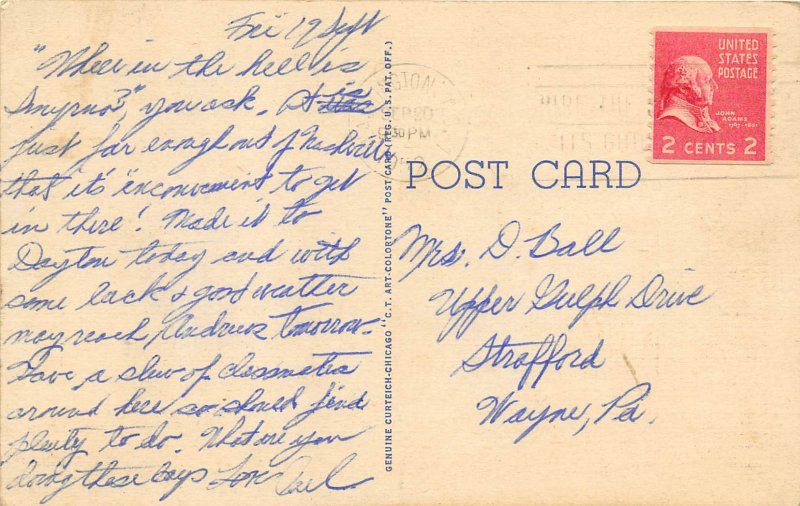 Fri 19 Sept
"Where in the hell is
Smyrna?", you ask. It is
just far enough out of Nashville
that it's inconvenient to get
in there! Made it to
Dayton today and with
some luck & good weather
may reach Andrews tomorrow.
Have a slew of classmates
around here so should find
plenty to do. What are you
doing these days Love
GENUINE CURTEICH-CHICAGO "C.T. ART-COLORTONE" POST CARD (REG. U. S. PAT. OFF.)
SEP 20
30 PM
UNITED
STATES
POSTAGE
JOHN
ADAMS
1797-1801
2 CENTS 2
POST CARD
Mrs. D. Ball
Upper Gulph Drive
Strafford
Wayne, Pa.